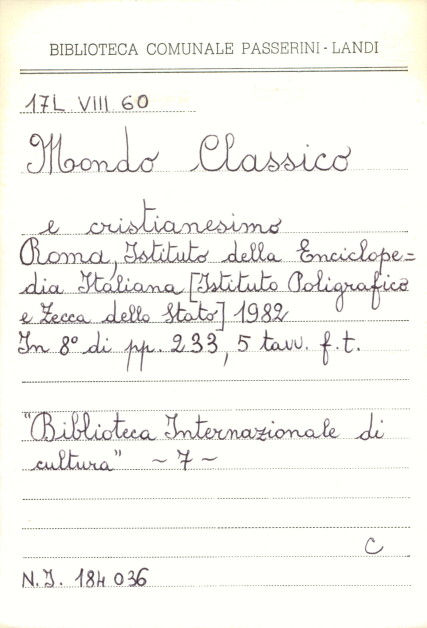 BIBLIOTECA COMUNALE PASSERINI - LANDI
17L VIII 60
Mondo Classico
e cristianesimo
Roma, Istituto della Enciclope=
dia Italiana [Istituto Poligrafico
e Zecca dello Stato] 1982
In 8° di pp. 233, 5 tavv. f.t.
"Biblioteca Internazionale di
cultura" ~ 7 ~
C
N.I. 184036